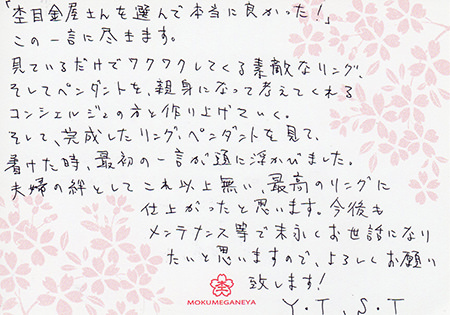 「杢目金屋さんを選んで本当に良かった！」
この一言に尽きます。
見ているだけでワクワクしてくる素敵なリング、
そしてペンダントを、親身になって考えてくれる
コンシェルジュの方と作り上げていく。
そして、完成したリング、ペンダントを見て、
着けた時、最初の一言が頭に浮かびました。
夫婦の絆としてこれ以上無い、最高のリングに
仕上がったと思います。今後も
メンテナンス等で末永くお世話になり
たいと思いますので、よろしくお願い
致します！
MOKUMEGANEYA
Y・T、S・T